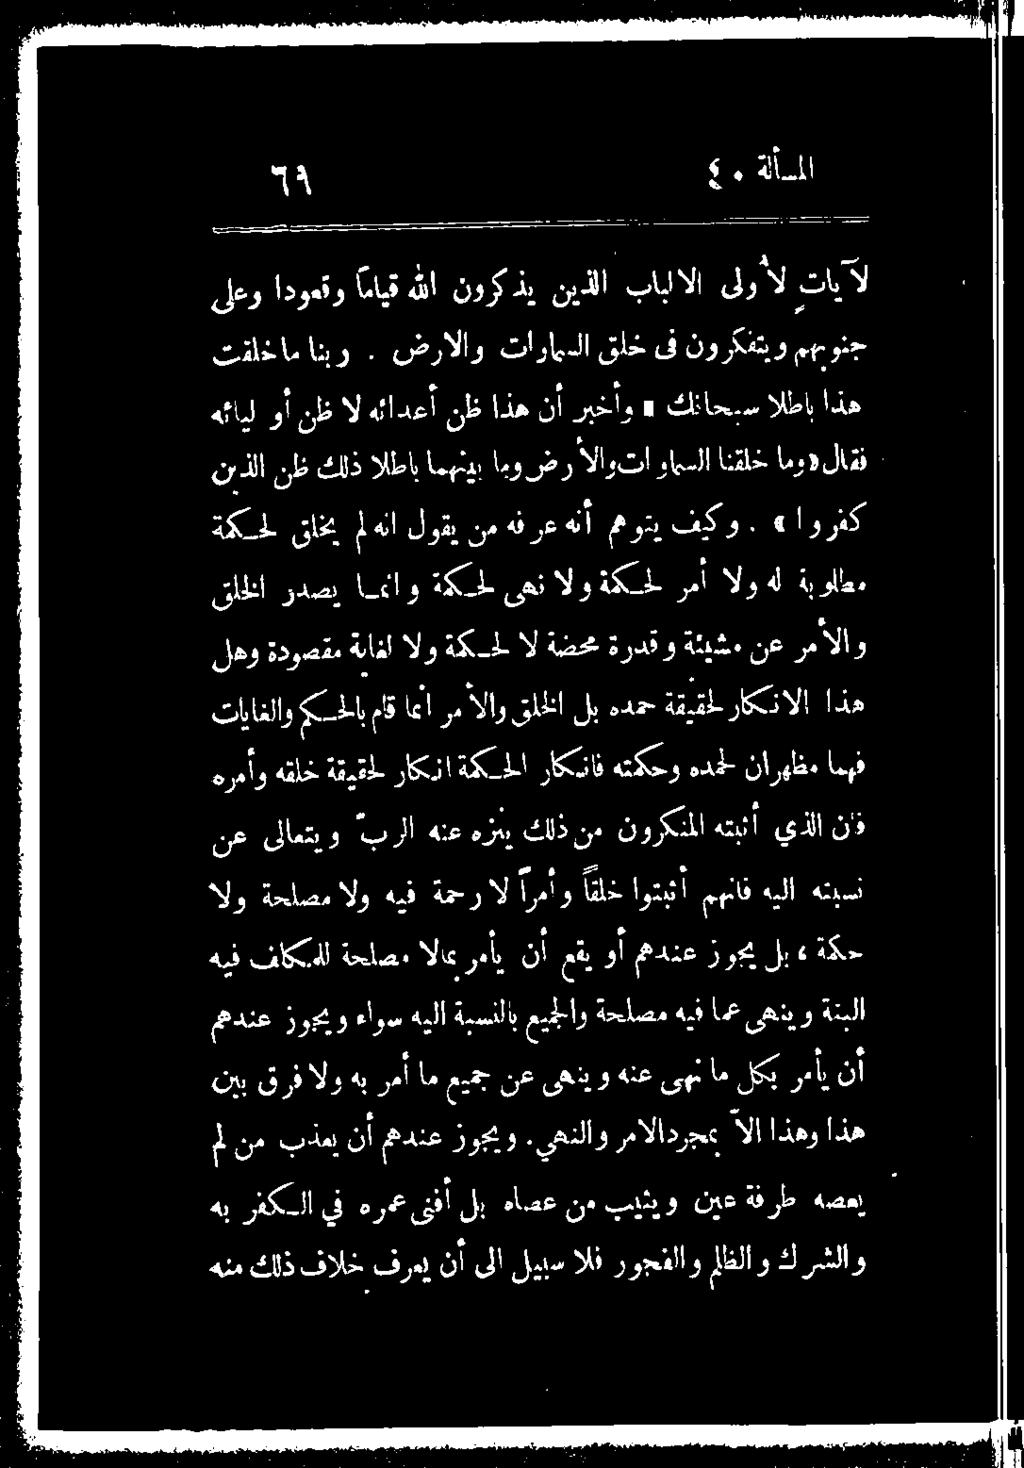 المسألة ٤٠ ٦٩
لآيات لأولى الالباب الذين يذكرون الله قياماً وقعودا وعلى
جنوبهم ويتفكرون فى خلق السماوات والارض . ربنا ماخلقت
هذا باطلا سبحانك » وأخبر أن هذا ظن أعدائه لا ظن أوليائه
فقال «وما خلقنا السماوات والأرض وما بينهما باطلا ذلك ظن الذين
كفروا » . وكيف يتوهم أنه عرفه من يقول انه لم يخلق لحكمة
مطلوبة له ولا أمر لحكمة ولا نهى لحكمة وانما يصدر الخلق
والأمر عن مشيئة وقدرة محضة لا لحكمة ولا لغاية مقصودة وهل
هذا الانكار لحقيقة حمده بل الخلق والأمر انما قام بالحكم والغايات
فهما مظهران لحمده وحكمته فانكار الحكمة انكار لحقيقة خلقه وأمره
فان الذي أثبته المنكرون من ذلك ينزه عنه الربّ ويتعالى عن
نسبته اليه فانهم أثبتوا خلقاً وأمراً لا رحمة فيه ولا مصلحة ولا
حكمة ، بل يجوز عندهم أو يقع أن يأمر بمالا مصلحة للمكلف فيه
البتة وينهى عما فيه مصلحة والجميع بالنسبة اليه سواء ويجوز عندهم
أن يأمر بكل ما نهى عنه وينهى عن جميع ما أمر به ولا فرق بين
هذا وهذا الاّ بمجرد الامر والنهي. ويجوز عندهم أن يعذب من لم
يعصه طرفة عين ويثيب من عصاه بل أفنى عمره في الكفر به
والشرك والظلم والفجور فلا سبيل الى أن يعرف خلاف ذلك منه